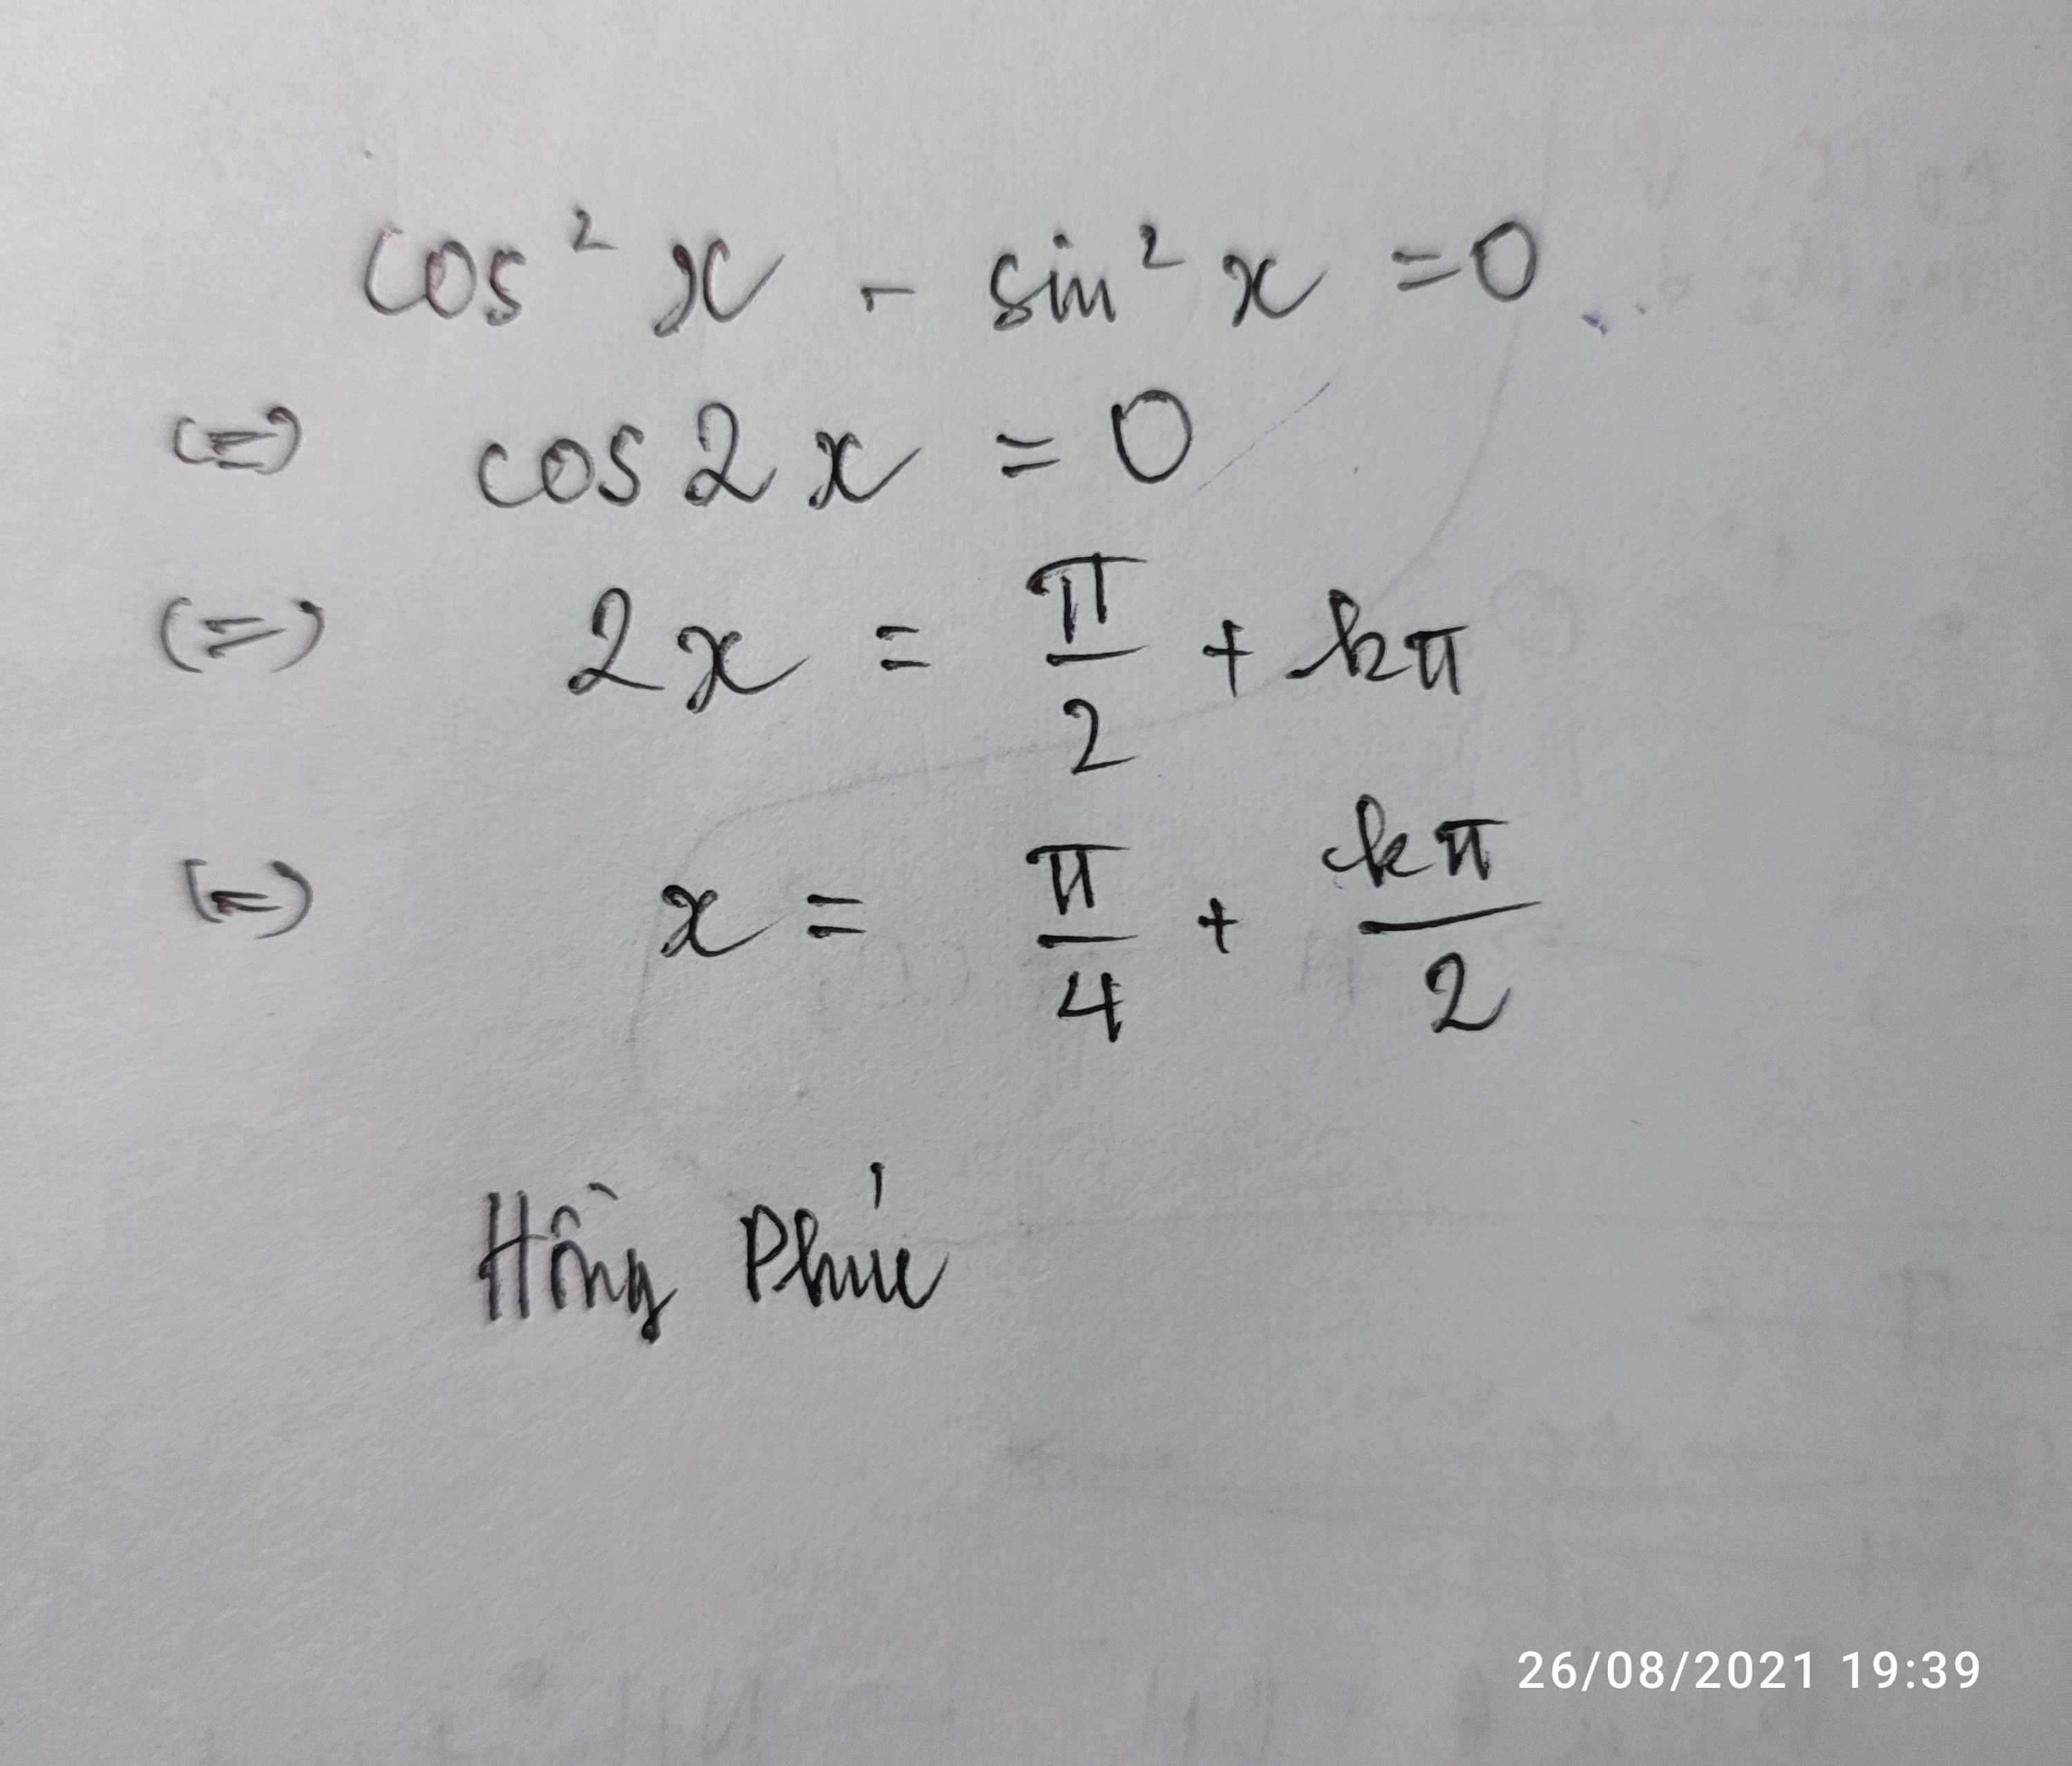 cos² x - sin² x = 0
(=) cos 2x = 0
(=) 2x = π/2 + kπ
(=) x = π/4 + kπ/2
Hồng Phúc
26/08/2021 19:39